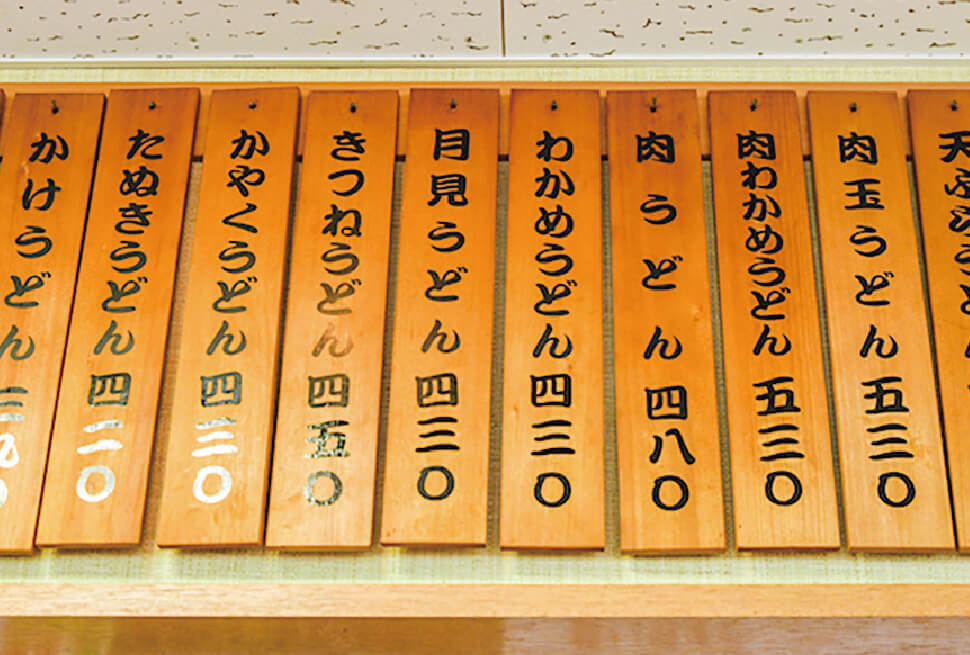 かけうどん
たぬきうどん 四二〇
かやくうどん 四三〇
きつねうどん 四五〇
月見うどん 四三〇
わかめうどん 四三〇
肉うどん 四八〇
肉わかめうどん 五三〇
肉玉うどん 五三〇
天ぷらうどん